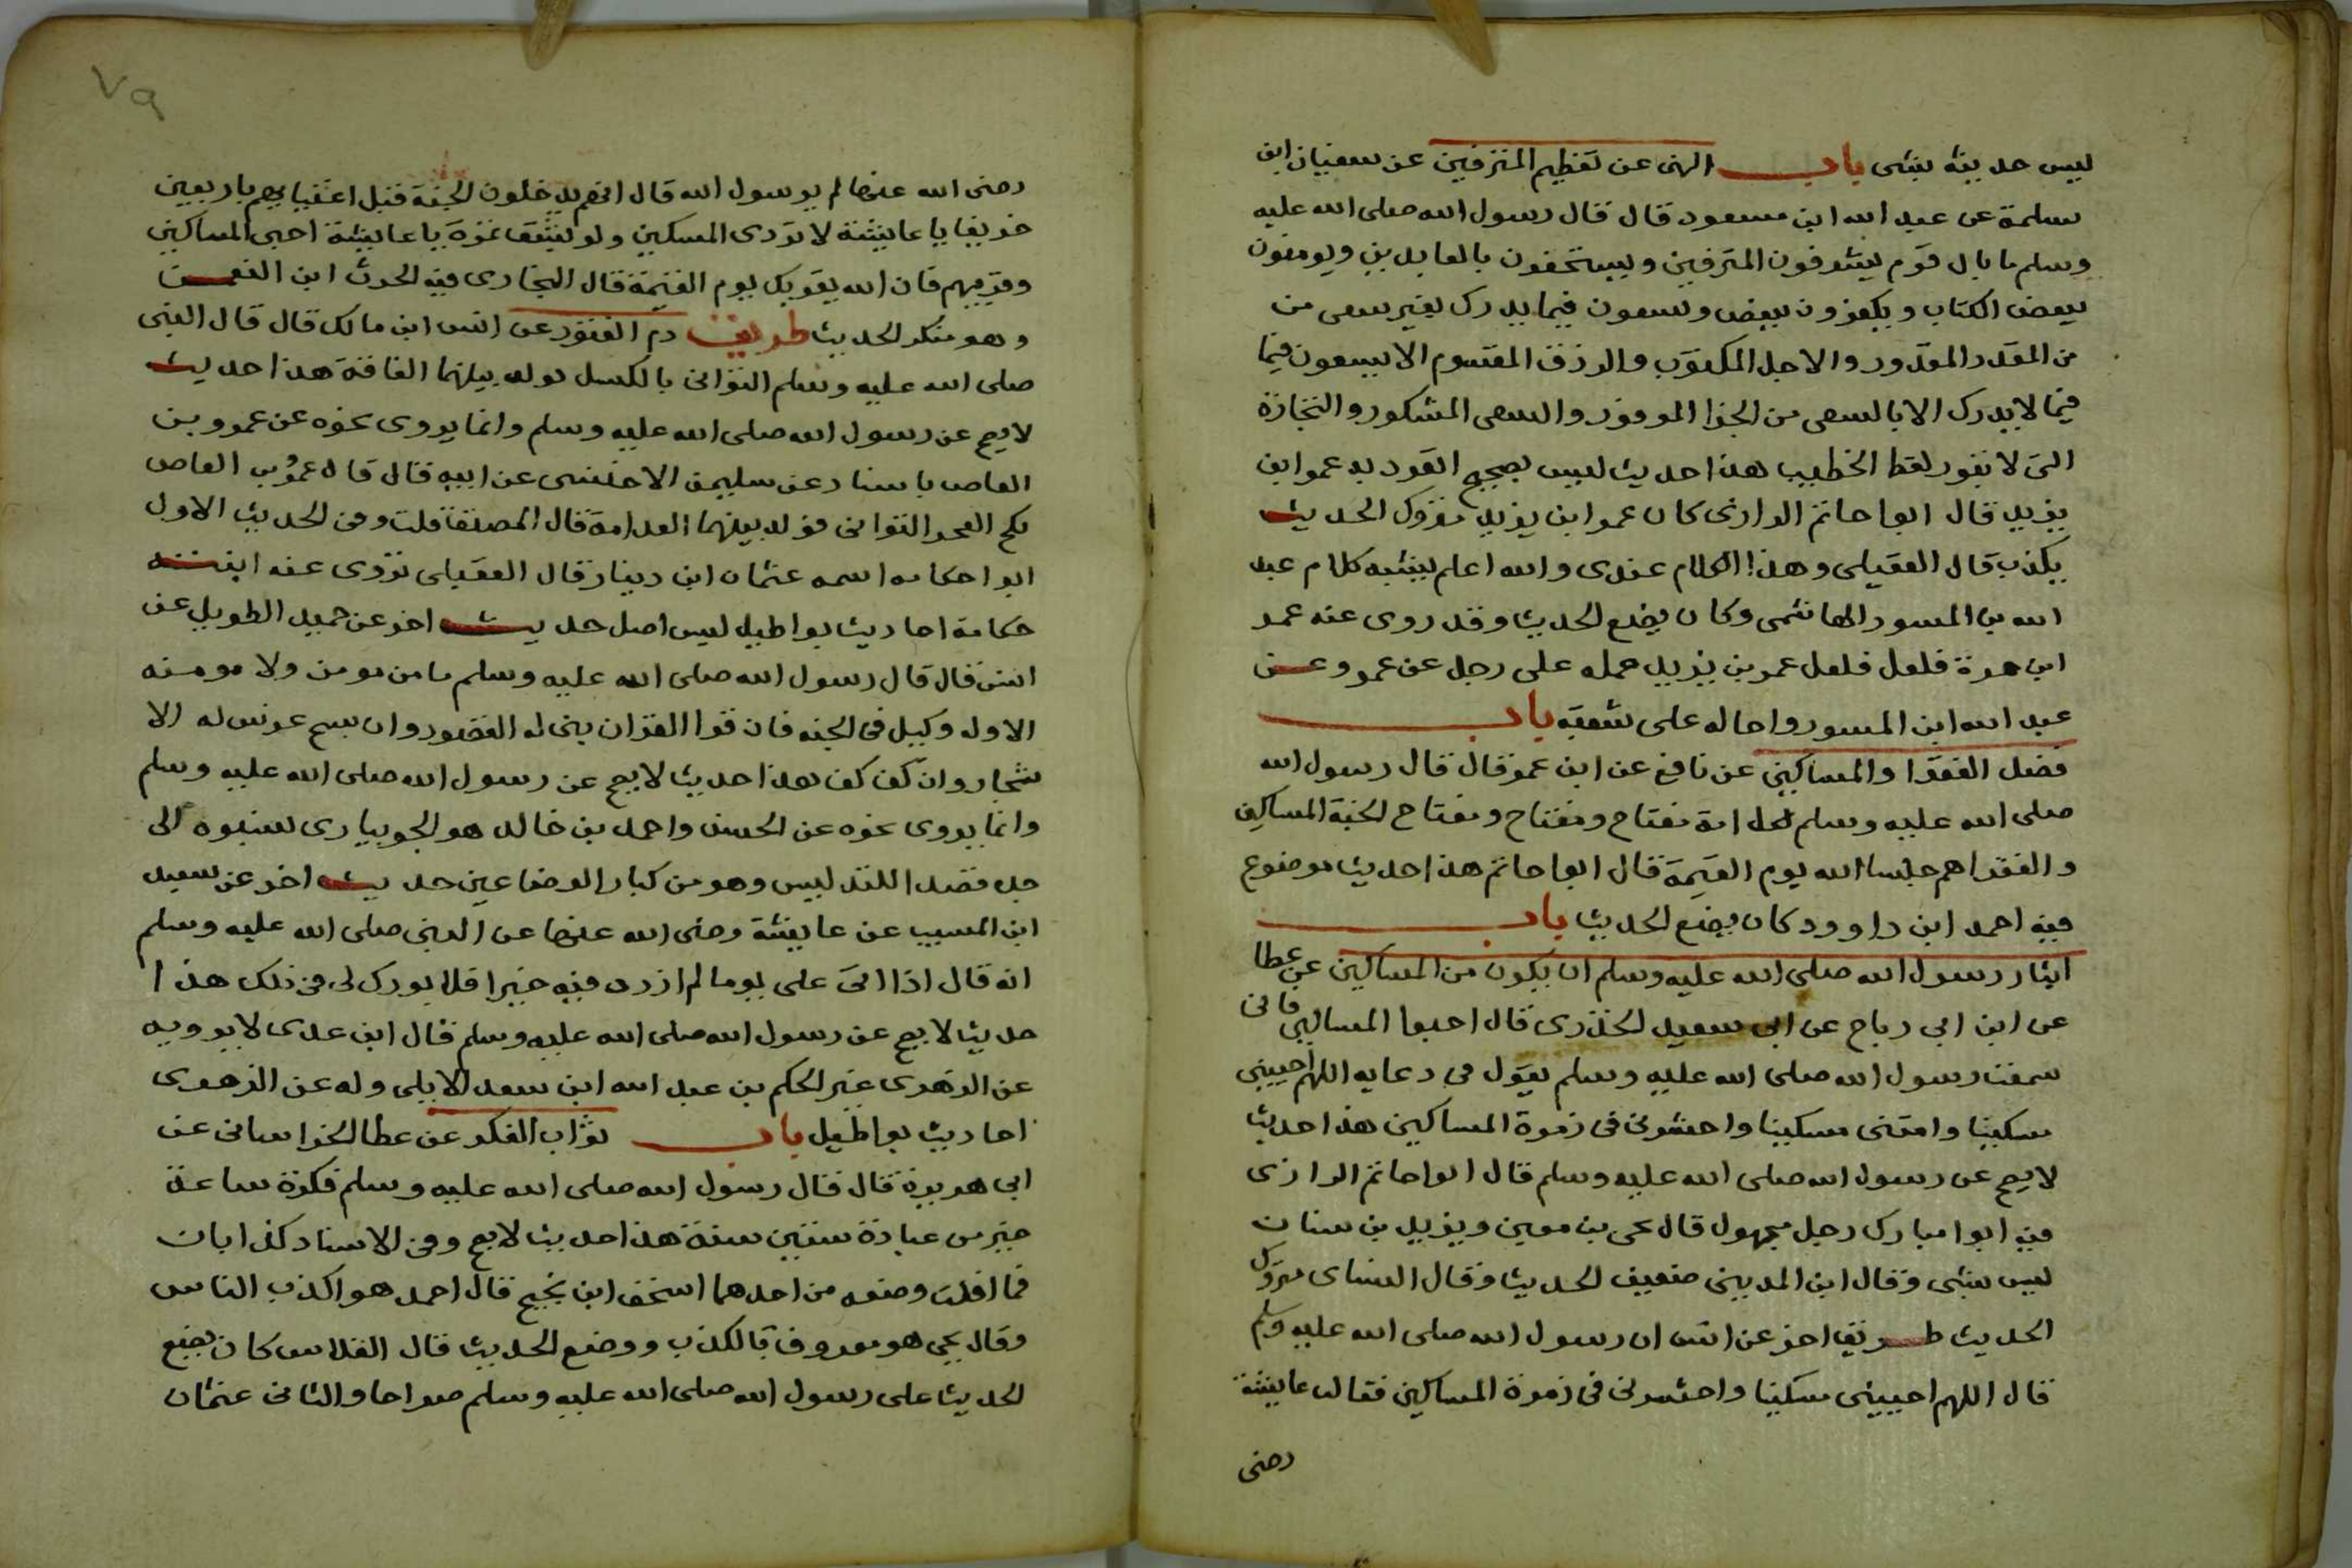 ليس حديثه بشى باب النهى عن تعظيم المترفين عن سفيان ابن
سلمة عن عبد الله ابن مسعود قال قال رسول الله صلى الله عليه
وسلم ما بال قوم يشرفون المترفين ويستخفون بالعابدين ويومنون
ببعض الكتاب ويكفرون ببعض ويسعون فيما يدرك بغير سعى من
من القدر المقدور والاجل المكتوب والرزق المقسوم الا يسعون فيما
فيما لا يدرك الا بالسعى من الجزا الموفور والسعى المشكور والتجارة
التى لا تبور لفظ الخطيب هذا حديث ليس بصحيح تفرد به عمر ابن
يزيد قال ابوا حاتم الرازى كان عمر ابن يزيد متروك الحديث
يكذب قال العقيلى وهذا الكلام عندى والله اعلم يشبه كلام عبد
الله بن المسور الهاشمى وكان يضع الحديث وقد روى عنه عمر
ابن مرة فلعل فلعل عمر بن يزيد حمله على رجل عن عمرو عن
عبد الله ابن المسور واحاله على شعبه باب
فضل الفقرا والمساكين عن نافع عن ابن عمر قال قال رسول الله
صلى الله عليه وسلم لكل امة مفتاح ومفتاح ومفتاح الجنة المساكين
والفقرا هم جلسا الله يوم القيمة قال ابوا حاتم هذا حديث موضوع
فيه احمد ابن داوود كان يضع الحديث باب
ايثار رسول الله صلى الله عليه وسلم ان يكون من المساكين عن عطا
عن ابن ابى رباح عن ابى سعيد الخدرى قال احبوا المساكين فانى
سمعت رسول الله صلى الله عليه وسلم يقول فى دعايه اللهم احيينى
مسكينا وامتنى مسكينا واحشرنى فى زمرة المساكين هذا حديث
لا يصح عن رسول الله صلى الله عليه وسلم قال ابوا حاتم الرازى
فيه ابوا مبارك رجل مجهول قال يحى بن معين ويزيد بن سنان
ليس بشى وقال ابن المدينى ضعيف الحديث وقال النساى متروك
الحديث طريق اخر عن انس ان رسول الله صلى الله عليه وسلم
قال اللهم احيينى مسكينا واحشرنى فى زمرة المساكين فقالت عايشة
رضى
٧٩
رضى الله عنها لم يرسول الله قال انهم يدخلون الجنة قبل اغنيايهم باربعين
خريفا يا عايشة لا تردى المسكين ولو بشق تمرة يا عايشة احبى المساكين
وقربيهم فان الله يقربك يوم القيمة قال البخارى فيه الحرث ابن النعمن
وهو منكر الحديث طريق ذم الفقر عن انس ابن مالك قال قال النبى
صلى الله عليه وسلم التوانى بالكسل تولد بينهما الفاقة هذا حديث
لا يصح عن رسول الله صلى الله عليه وسلم وانما يروى نحوه عن عمرو بن
العاص باسناد عن سليمن الاخنسى عن ابيه قال قال عمرو بن العاص
نكح العجز التوانى فولد بينهما الندامة قال المصنف قلت وفى الحديث الاول
ابوا حكامه اسمه عثمان ابن دينار قال العقيلى تروى عنه ابنته
حكامة احاديث بواطيل ليس اصل حديث اخر عن حميد الطويل عن
انس قال قال رسول الله صلى الله عليه وسلم ما من مومن ولا مومنه
الاوله وكيل فى الجنه فان قرا القران بنى له القصور وان سبح غرس له الا
شجار وان كف كف هذا حديث لا يصح عن رسول الله صلى الله عليه وسلم
وانما يروى نحوه عن الحسن واحمد بن خالد هو الجويبارى نسبوه الى
جده قصد اللتدليس وهو من كبار الوضاعين حديث اخر عن سعيد
ابن المسيب عن عايشة رضى الله عنها عن النبى صلى الله عليه وسلم
انه قال اذا اتى على يوما لم ازدد فيه خيرا فلا بورك لى فى ذلك هذا
حديث لا يصح عن رسول الله صلى الله عليه وسلم قال ابن عدى لا يرويه
عن الزهرى غير الحكم بن عبد الله ابن سعد الايلى وله عن الزهرى
احاديث بواطيل باب ثواب الفكر عن عطا الخراسانى عن
ابى هريرة قال قال رسول الله صلى الله عليه وسلم فكرة ساعة
خير من عبادة ستين سنة هذا حديث لا يصح وفى الاسناد كذابان
فما افلت وضعه من احدهما اسحق ابن نجيح قال احمد هو اكذب الناس
وقال يحى هو معروف بالكذب ووضع الحديث قال الفلاس كان يضع
الحديث على رسول الله صلى الله عليه وسلم صراحا والثانى عثمان